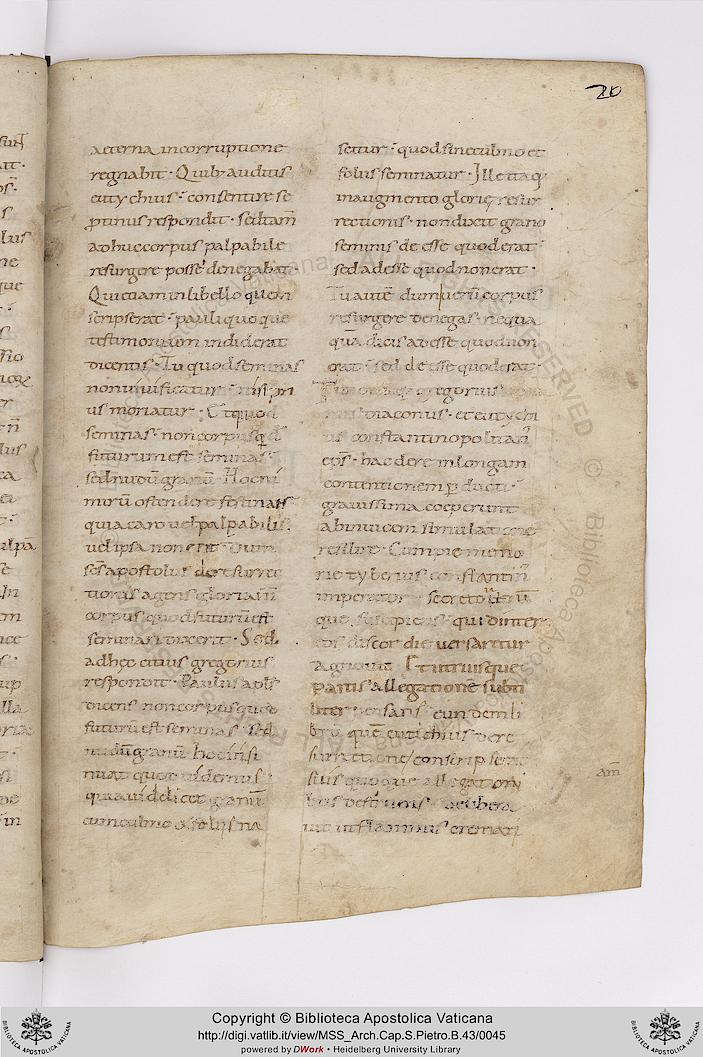 20
aeterna incorruptione
regnabit · Quib; auditis
euty chius · consentire se
ꝓtinus respondit · sed tam̄
adhuc corpus palpabile
resurgere posse denegabat
Qui etiam in libello quem
scripserat · pauli quoque
testimonium indiderat
dicentis · Tu quod seminas
non uiuificatur · nisi pri
us moriatur · Et quod
seminas · non corpus qđ
futurum est seminas ·
sed nudū granū Hoc ni
mirū ostendere festinans
quia caro uel palpabilis
uel ipsa non erit · Dum
sc̄s apostolus de resurrec
tionis agens gloriam
corpus quod futurū est
seminari dixerat · Sed
adhęc citius gregorius
respondit · Paulus apł's
dicens non corpus quod
futurū est seminas · sed
nudū granū hoc insi
nuat quod uidemus
qua uidelicet granū
cum culmo & foliis na
scitur · quod sine culmo et
foliis seminatur · Ille itaq;
in augmento glorię resur
rectionis · non dixit grano
seminis deesse quod erat
sed adesse quod non erat ·
Tu autē dum uerū corpus
resurgere denegas · nequa
qua dicis adesse quod non
erat · sed deesse quod erat ·
gregorius
nus diaconus · et eutychi
us constantinopolitan
ep̄s · hac de re in longam
contentionem ꝑducti ·
grauissima coeperunt
abinuicem simulatione
resilire · Cum pie memo
rie tyberius constantin
imperator · secreto utrū
que suscipiens · quid inter
eos discordie uersaretur
agnouit Et utriusque
partis allegationē subti
liter pensans eundem li
brū quē eutichius de re
surrectione conscripserat
suis quoque allegationi
bus destruens delibera
uit ut flammis cremari
am̄
Copyright © Biblioteca Apostolica Vaticana
http://digi.vatlib.it/view/MSS_Arch.Cap.S.Pietro.B.43/0045
powered by DWork • Heidelberg University Library